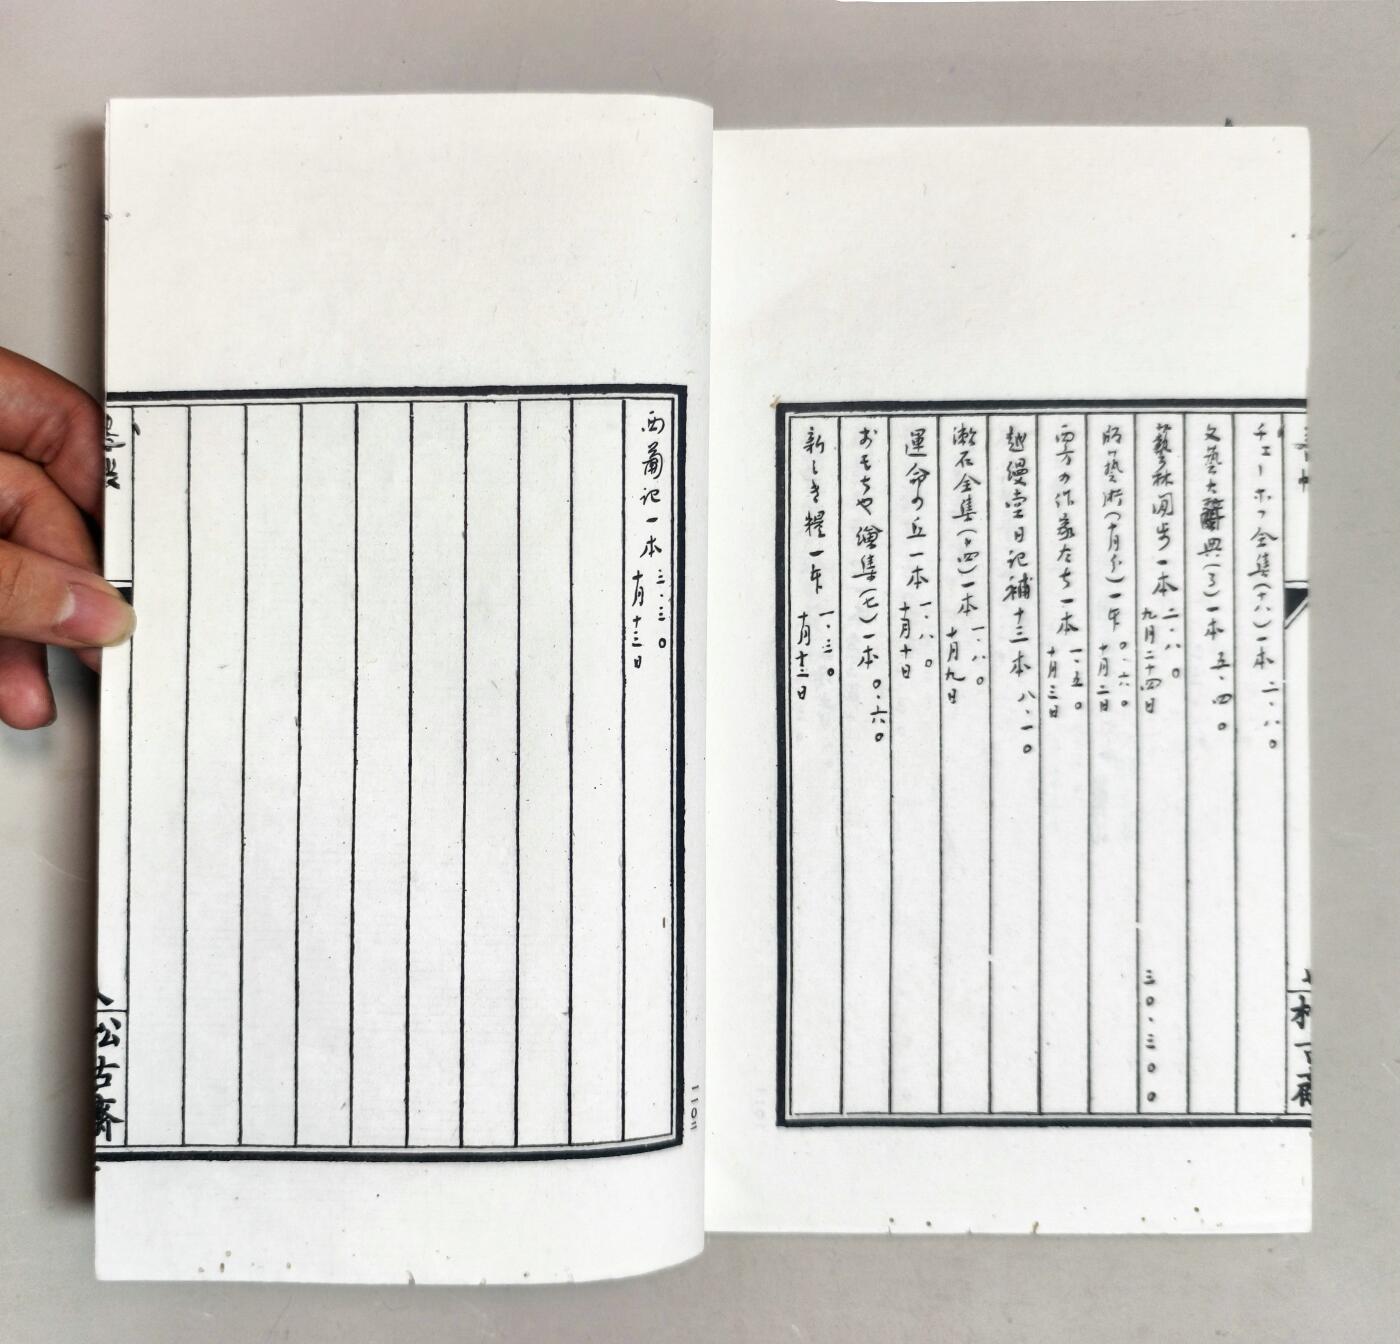 チェーホフ全集(十八)一本 二.八〇
文藝大辭典(3)一本 五.四〇
藝林閒步一本 二.八〇 九月二十四日 三〇.三〇〇
版藝術(十月分)一本 〇.六〇 十月二日
西方の作家たち一本 一.五〇 十月三日
越縵堂日記補十三本 八.一〇
漱石全集(十四)一本 一.八〇 十月九日
運命の丘一本 一.八〇 十月十日
おもちや繪集(七)一本 〇.六〇
新しき糧一本 一.三〇 十月十二日
西葡記一本 三.三〇 十月十三日
松古齋